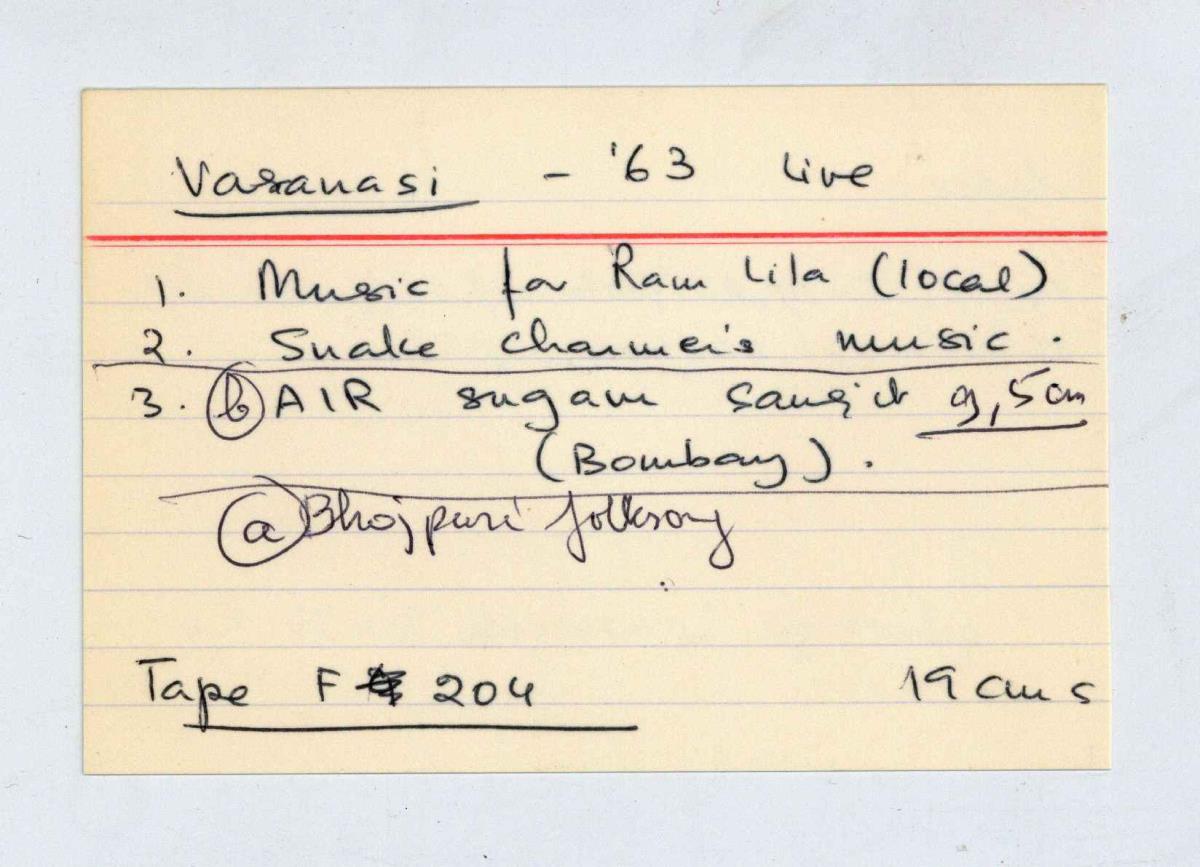 Varanasi - '63 Live
1. Music for Ram Lila (local)
2. Snake charmer's music.
3. (b) AIR sugam sangit 9,5 cm
(Bombay).
(a) Bhojpuri folksong
Tape F 204 19 cms